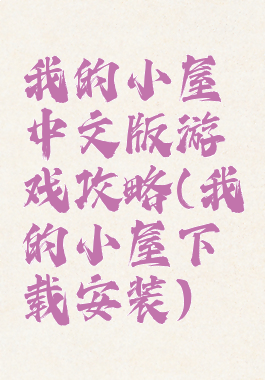 我的小屋
中文版游
戏攻略(我
的小屋下
载安装)